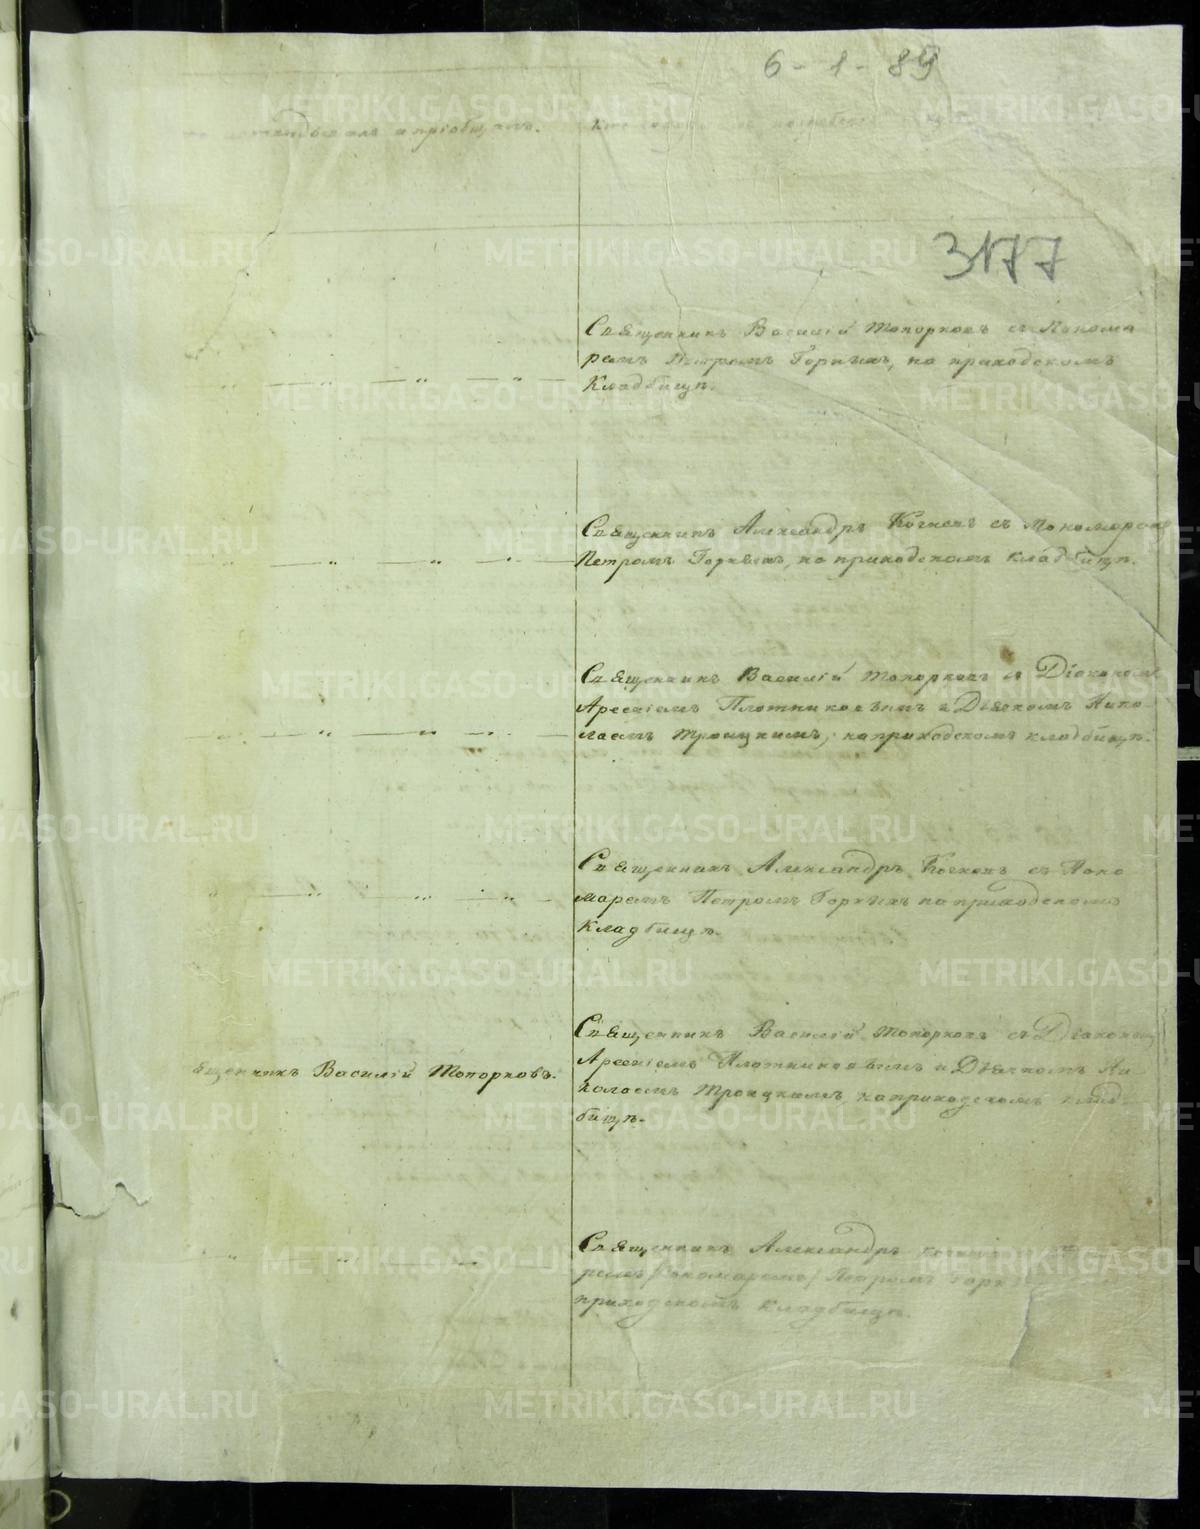 6 - 1 - 89
и приобщалъ.
3177
Священникъ Василій Топорковъ съ Понома
ремъ Петромъ Горныхъ, на приходскомъ
Кладбищѣ.
Священникъ Александръ съ Пономаремъ
Петромъ Горныхъ, на приходскомъ кладбищѣ.
Священникъ Василій Топорковъ съ Діакономъ
Арсеніемъ Плотниковымъ и Дьячкомъ Нико-
лаемъ Троицкимъ, на приходскомъ кладбищѣ.
Священникъ Александръ съ Поно
маремъ Петромъ Горныхъ на приходскомъ
Кладбищѣ.
Священникъ Василій Топорковъ съ Діакономъ
ященникъ Василій Топорковъ.
Арсеніемъ Плотниковымъ и Дьячкомъ Ни
колаемъ Троицкимъ, на приходскомъ клад
бищѣ.
Священникъ Александръ
Пономаремъ Петромъ
приходскомъ кладбищѣ.
METRIKI.GASO-URAL.RU